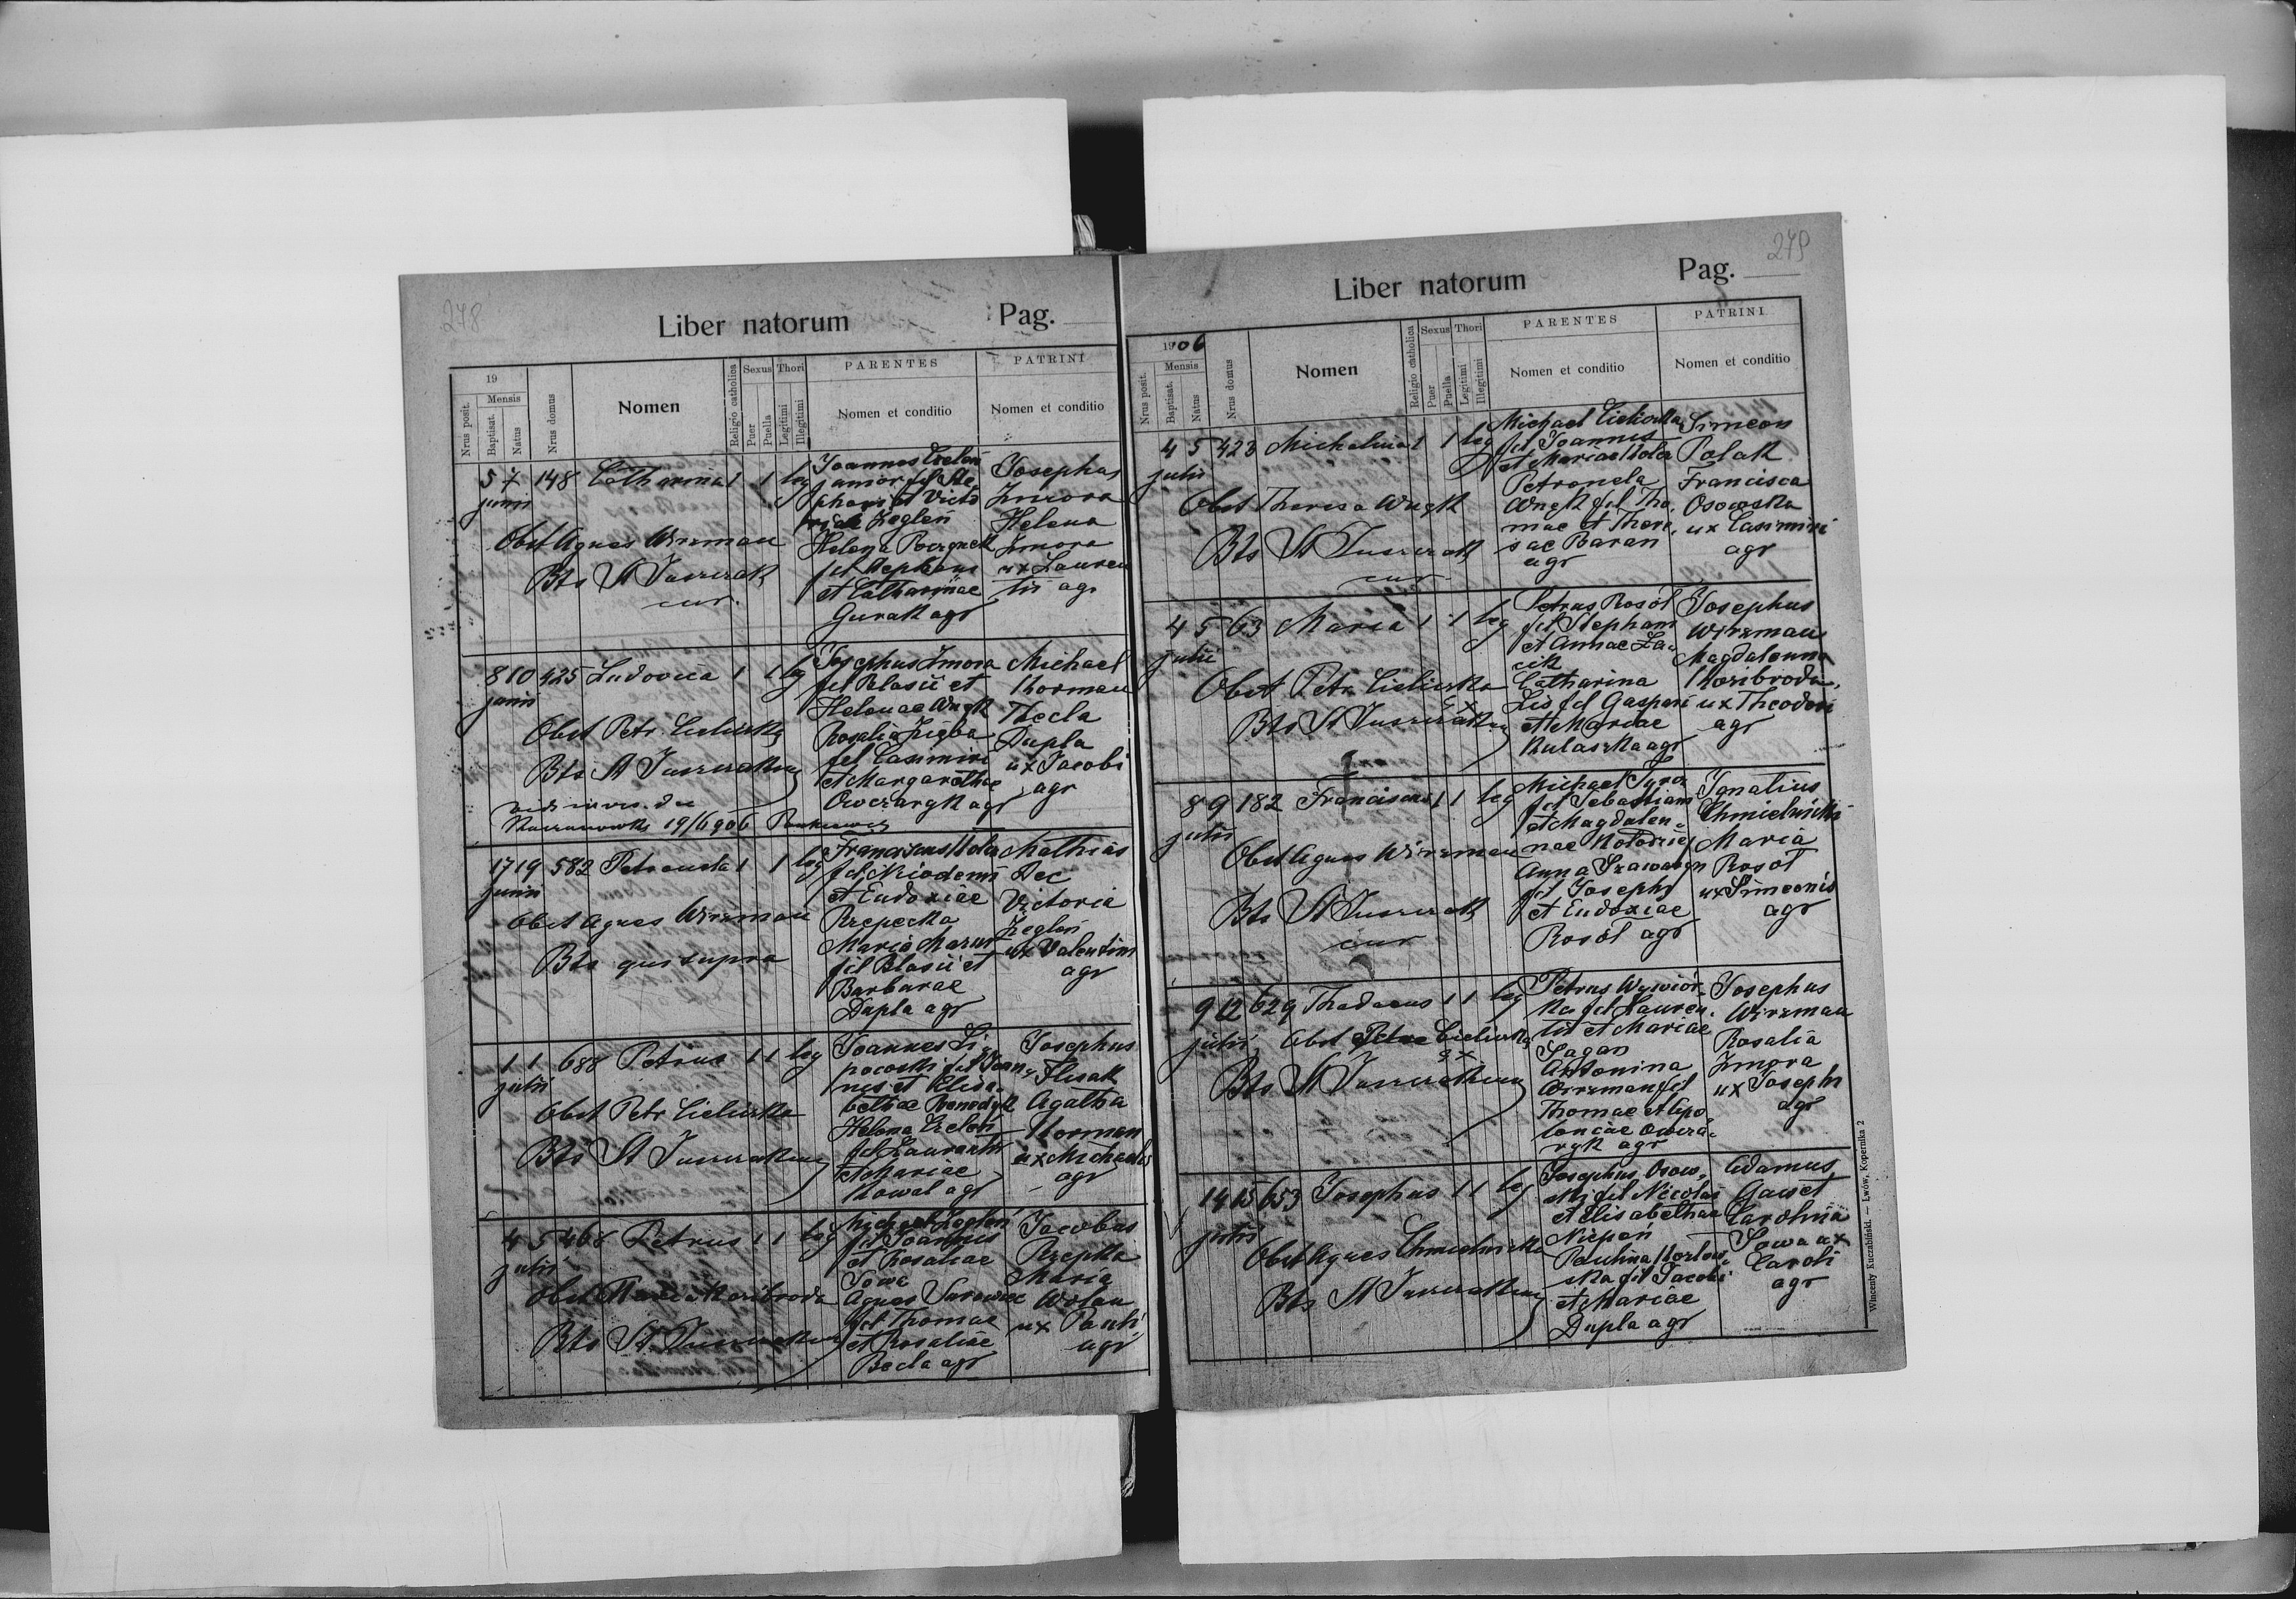 278
Liber natorum
Pag.
19
Nrus posit.
Mensis
Baptisat.
Natus
Nrus domus
Nomen
Religio catholica
Sexus
Puer
Puella
Thori
Legitimi
Illegitimi
PARENTES
Nomen et conditio
PATRINI
Nomen et conditio
5 7 148 Catharina 1 1 leg
junii
Obst Agnes Wirzman
Bts St
cur.
Joannes
junior fil Ste
phani et Victo
riae Zegleń
Helena
fil Stephani
et Catharinae
Gurak agr
Josephus
Zmora
Helena
Zmora
ux Lauren
tii agr
8 10 425 Ludovica 1 1 leg
junii
Obst Petr.
Bts St
19/6 906
Josephus Zmora
fil Blasii et
Helenae Wnęk
Rosalia Zięba
fil Casimiri
et Margarethae
Owczaryk agr
Michael
Korman
Thecla
Dupla
ux Jacobi
agr
17 19 582 Petronela 1 1 leg
junii
Obst Agnes Wirzman
Bts qui supra
Franciscus Kolea
fil Nicodemi
et Eudoxiae
Rzepecka
Maria Mazur
fil Blasii et
Barbarae
Dupla agr
Mathias
Dec
Victoria
Zegleń
ux Valentini
agr
1 1 688 Petrus 1 1 leg
julii
Obst Petr
Bts St
Joannes Li
pocoski fil Joan
nis et Elisa
bethae Benedyk
Helena
fil Laurentii
et Mariae
Kowal agr
Josephus
Flisak
Agatha
Korman
ux Michaelis
agr
4 5 468 Petrus 1 1 leg
julii
Obst Maria Koribroda
Bts St
Michael Zegleń
fil Joannis
et Rosaliae
Sowa
Agnes Surowiec
fil Thomae
et Rosaliae
Becla agr
Jacobus
Rzepka
Maria
Wolan
ux Pauli
agr
279
Liber natorum
Pag.
1906
Nrus posit.
Mensis
Baptisat.
Natus
Nrus domus
Nomen
Religio catholica
Sexus
Puer
Puella
Thori
Legitimi
Illegitimi
PARENTES
Nomen et conditio
PATRINI
Nomen et conditio
4 5 423 Michalina 1 1 leg
julii
Obst Theresa Wnęk
Bts St
cur
Michael
fil Joannis
et Mariae Kolea
Petronela
Wnęk fil Tho
mae et There
sae Baran
agr
Simeon
Polak
Francisca
Osowska
ux Casimiri
agr
4 5 63 Maria 1 1 leg
julii
Obst Petr.
Bts St
Petrus Rosół
fil Stephani
et Annae Ła
cik
Catharina
Lis fil Gaspari
et Mariae
Kulaszka agr
Josephus
Wirzman
Magdalenna
Koribroda
ux Theodori
agr
8 9 182 Franciscus 1 1 leg
julii
Obst Agnes Wirzman
Bts St
cur
Michael
fil Sebastiani
et Magdalen
nae Kołodziej
Anna
fil Josephi
et Eudoxiae
Rosół agr
Ignatius
Chmielnicki
Maria
Rosół
ux Simeonis
agr
9 12 629 Thadaeus 1 1 leg
julii
Obst Petr
Bts St
Petrus Wywiór
ka fil Lauren
tii et Mariae
Sagan
Antonina
Wirzman fil
Thomae et Apo
loniae Owcza
ryk agr
Josephus
Wirzman
Rosalia
Zmora
ux Josephi
agr
14 15 653 Josephus 1 1 leg
julii
Obst Agnes Chmielnicka
Bts St
Josephus Osow
ski fil Nicolai
et Elisabethae
Niepan
Paulina
ska fil Jacobi
et Mariae
Dupla agr
Adamus
Carolina
Sowa ux
Caroli
agr
Wincenty Kuczabiński. — Lwów, Kopernika 2